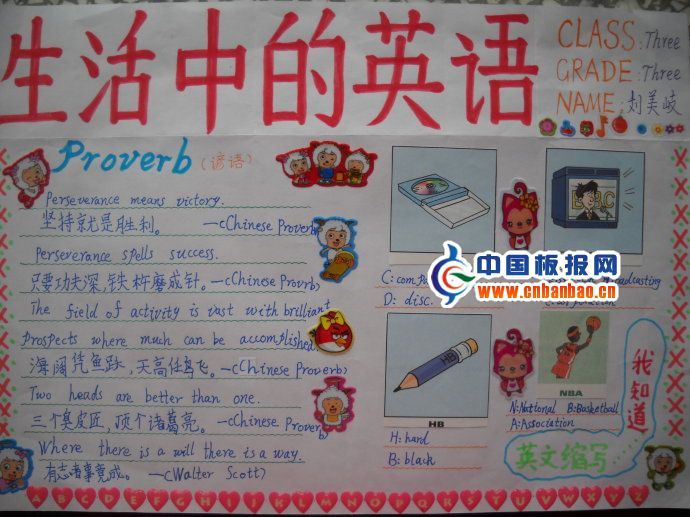 生活中的英语
CLASS:Three
GRADE:Three
NAME:刘美岐
Proverb(谚语)
Perseverance means victory.
坚持就是胜利。 —cChinese Proverb)
Perseverance spells success.
只要功夫深,铁杵磨成针。—cChinese Provrb)
The field of activity is vast with brilliant
prospects where much can be accomplished.
海阔凭鱼跃,天高任鸟飞。—cChinese Provrb)
Two heads are better than one.
三个臭皮匠,顶个诸葛亮。—cChinese Proverb)
Where there is a will there is a way.
有志者事竟成。 —cWalter Scott)
D: disc.
中国板报网
www.cnbanbao.cn
HB
H: hard
B: black
NBA
N:National B:Basketball
A:Association
我知道
英文缩写……
A B C D E F G H I J K L M N O P Q R S T U V W X Y Z